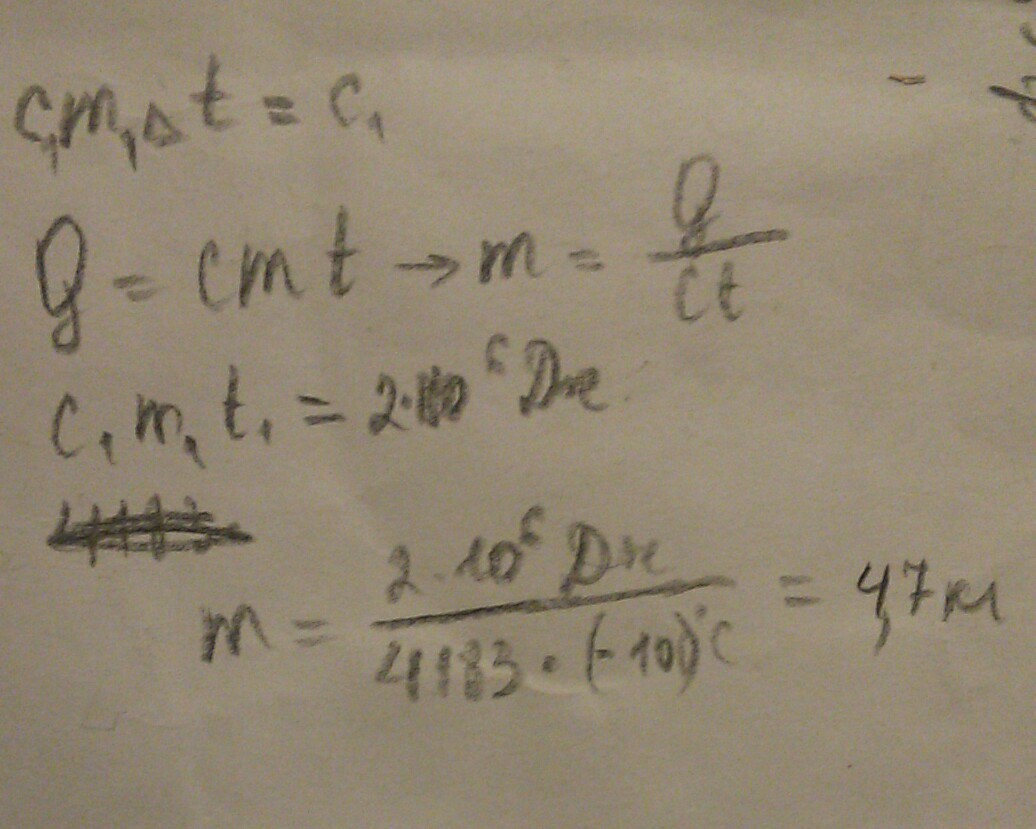 c₁m₁Δt = c₁
Q = cmt → m = Q/ct
c₁m₁t₁ = 2·10⁶ Дж
m = 2·10⁶ Дж / 4183·(-10)°C = 4,7 кг